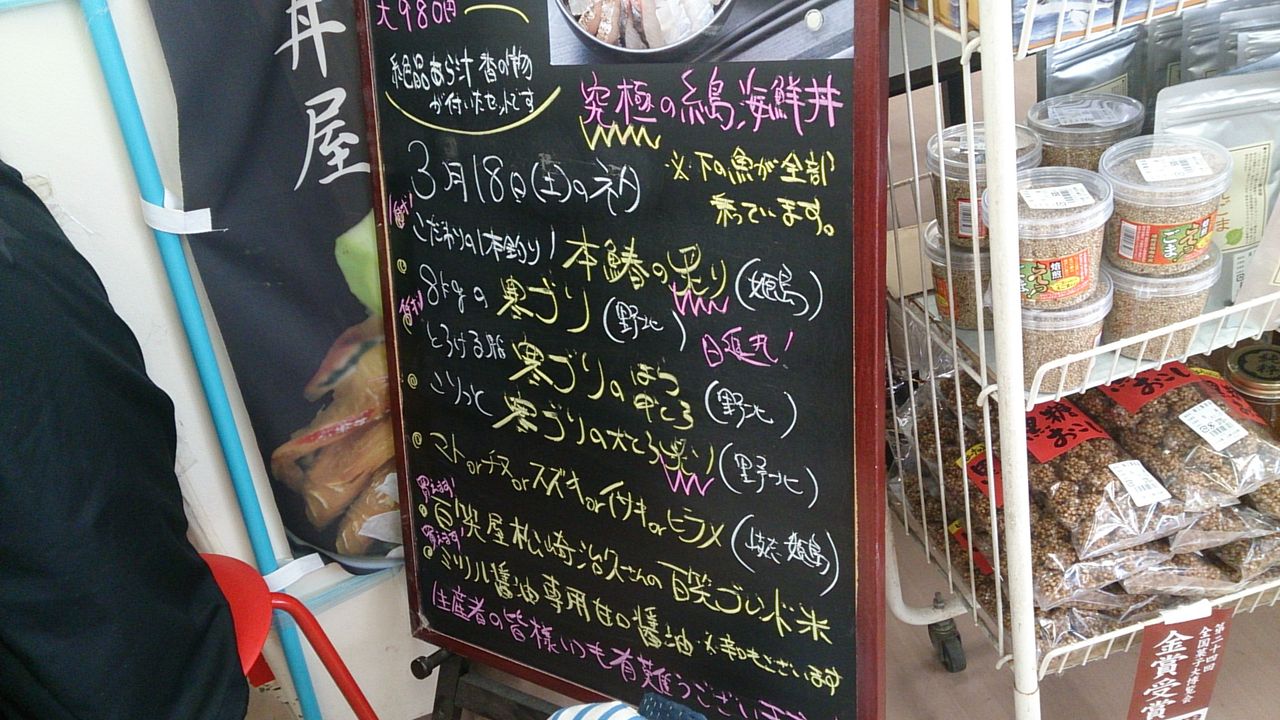 丼屋
大980円
絶品あら汁 香の物
が付いたセットです
究極の糸島海鮮丼
3月18日(土)のネタ
※下の魚が全部
乗っています。
こだわりの1本釣り! 本鰆の炙り (姫島)
8kgの 寒ブリ (野北)
とろける脂 寒ブリの 中とろ (野北)
こりっと 寒ブリの大とろ炙り (野北)
マトorチヌorスズキorイサキorヒラメ
買えます!
百笑屋松崎治久さんの百笑ブレンド米
買えます!
ミツル醤油専用甘口醤油 ※辛口もございます
生産者の皆様いつも有難うござい
焙煎
えごま
黒糖
おこし
第二十四回
全国菓子大博覧会
金賞受賞